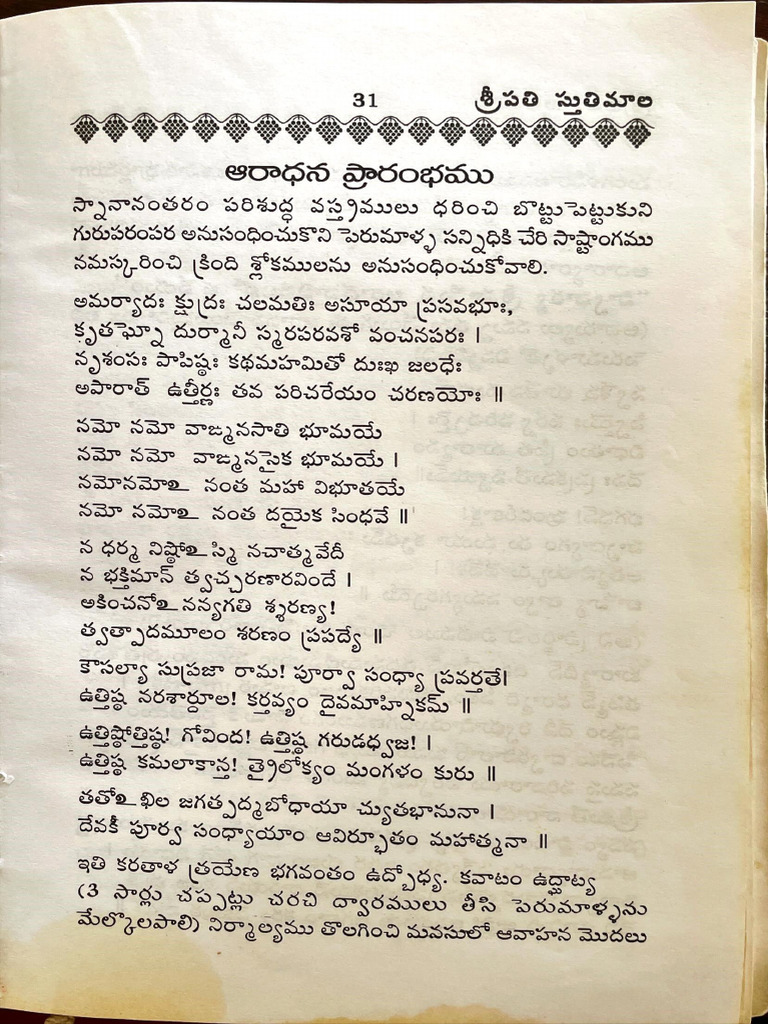 31 శ్రీపతి స్తుతిమాల
ఆరాధన ప్రారంభము
స్నానానంతరం పరిశుద్ధ వస్త్రములు ధరించి బొట్టుపెట్టుకుని
గురుపరంపర అనుసంధించుకొని పెరుమాళ్ళ సన్నిధికి చేరి సాష్టాంగము
నమస్కరించి క్రింది శ్లోకములను అనుసంధించుకోవాలి.
అమర్యాదః క్షుద్రః చలమతిః అసూయా ప్రసవభూః,
కృతఘ్నో దుర్మానీ స్మరపరవశో వంచనపరః |
నృశంసః పాపిష్ఠః కథమహమితో దుఃఖ జలధేః
అపారాత్ ఉత్తీర్ణః తవ పరిచరేయం చరణయోః ||
నమో నమో వాఙ్మనసాతి భూమయే
నమో నమో వాఙ్మనసైక భూమయే |
నమోనమోఽ నంత మహా విభూతయే
నమో నమోఽ నంత దయైక సింధవే ||
న ధర్మ నిష్ఠోఽ స్మి నచాత్మవేదీ
న భక్తిమాన్ త్వచ్చరణారవిందే |
అకించనోఽ నన్యగతి శ్శరణ్య!
త్వత్పాదమూలం శరణం ప్రపద్యే ||
కౌసల్యా సుప్రజా రామ! పూర్వా సంధ్యా ప్రవర్తతే|
ఉత్తిష్ఠ నరశార్దూల! కర్తవ్యం దైవమాహ్నికమ్ ||
ఉత్తిష్ఠోత్తిష్ఠ! గోవింద! ఉత్తిష్ఠ గరుడధ్వజ! |
ఉత్తిష్ఠ కమలాకాన్త! త్రైలోక్యం మంగళం కురు ||
తతోఽ ఖిల జగత్పద్మబోధాయా చ్యుతభానునా |
దేవకీ పూర్వ సంధ్యాయాం ఆవిర్భూతం మహాత్మనా ||
ఇతి కరతాళ త్రయేణ భగవంతం ఉద్బోధ్య. కవాటం ఉద్ఘాట్య
(3 సార్లు చప్పట్లు చరచి ద్వారములు తీసి పెరుమాళ్ళను
మేల్కొలపాలి) నిర్మాల్యము తొలగించి మనసులో ఆవాహన మొదలు